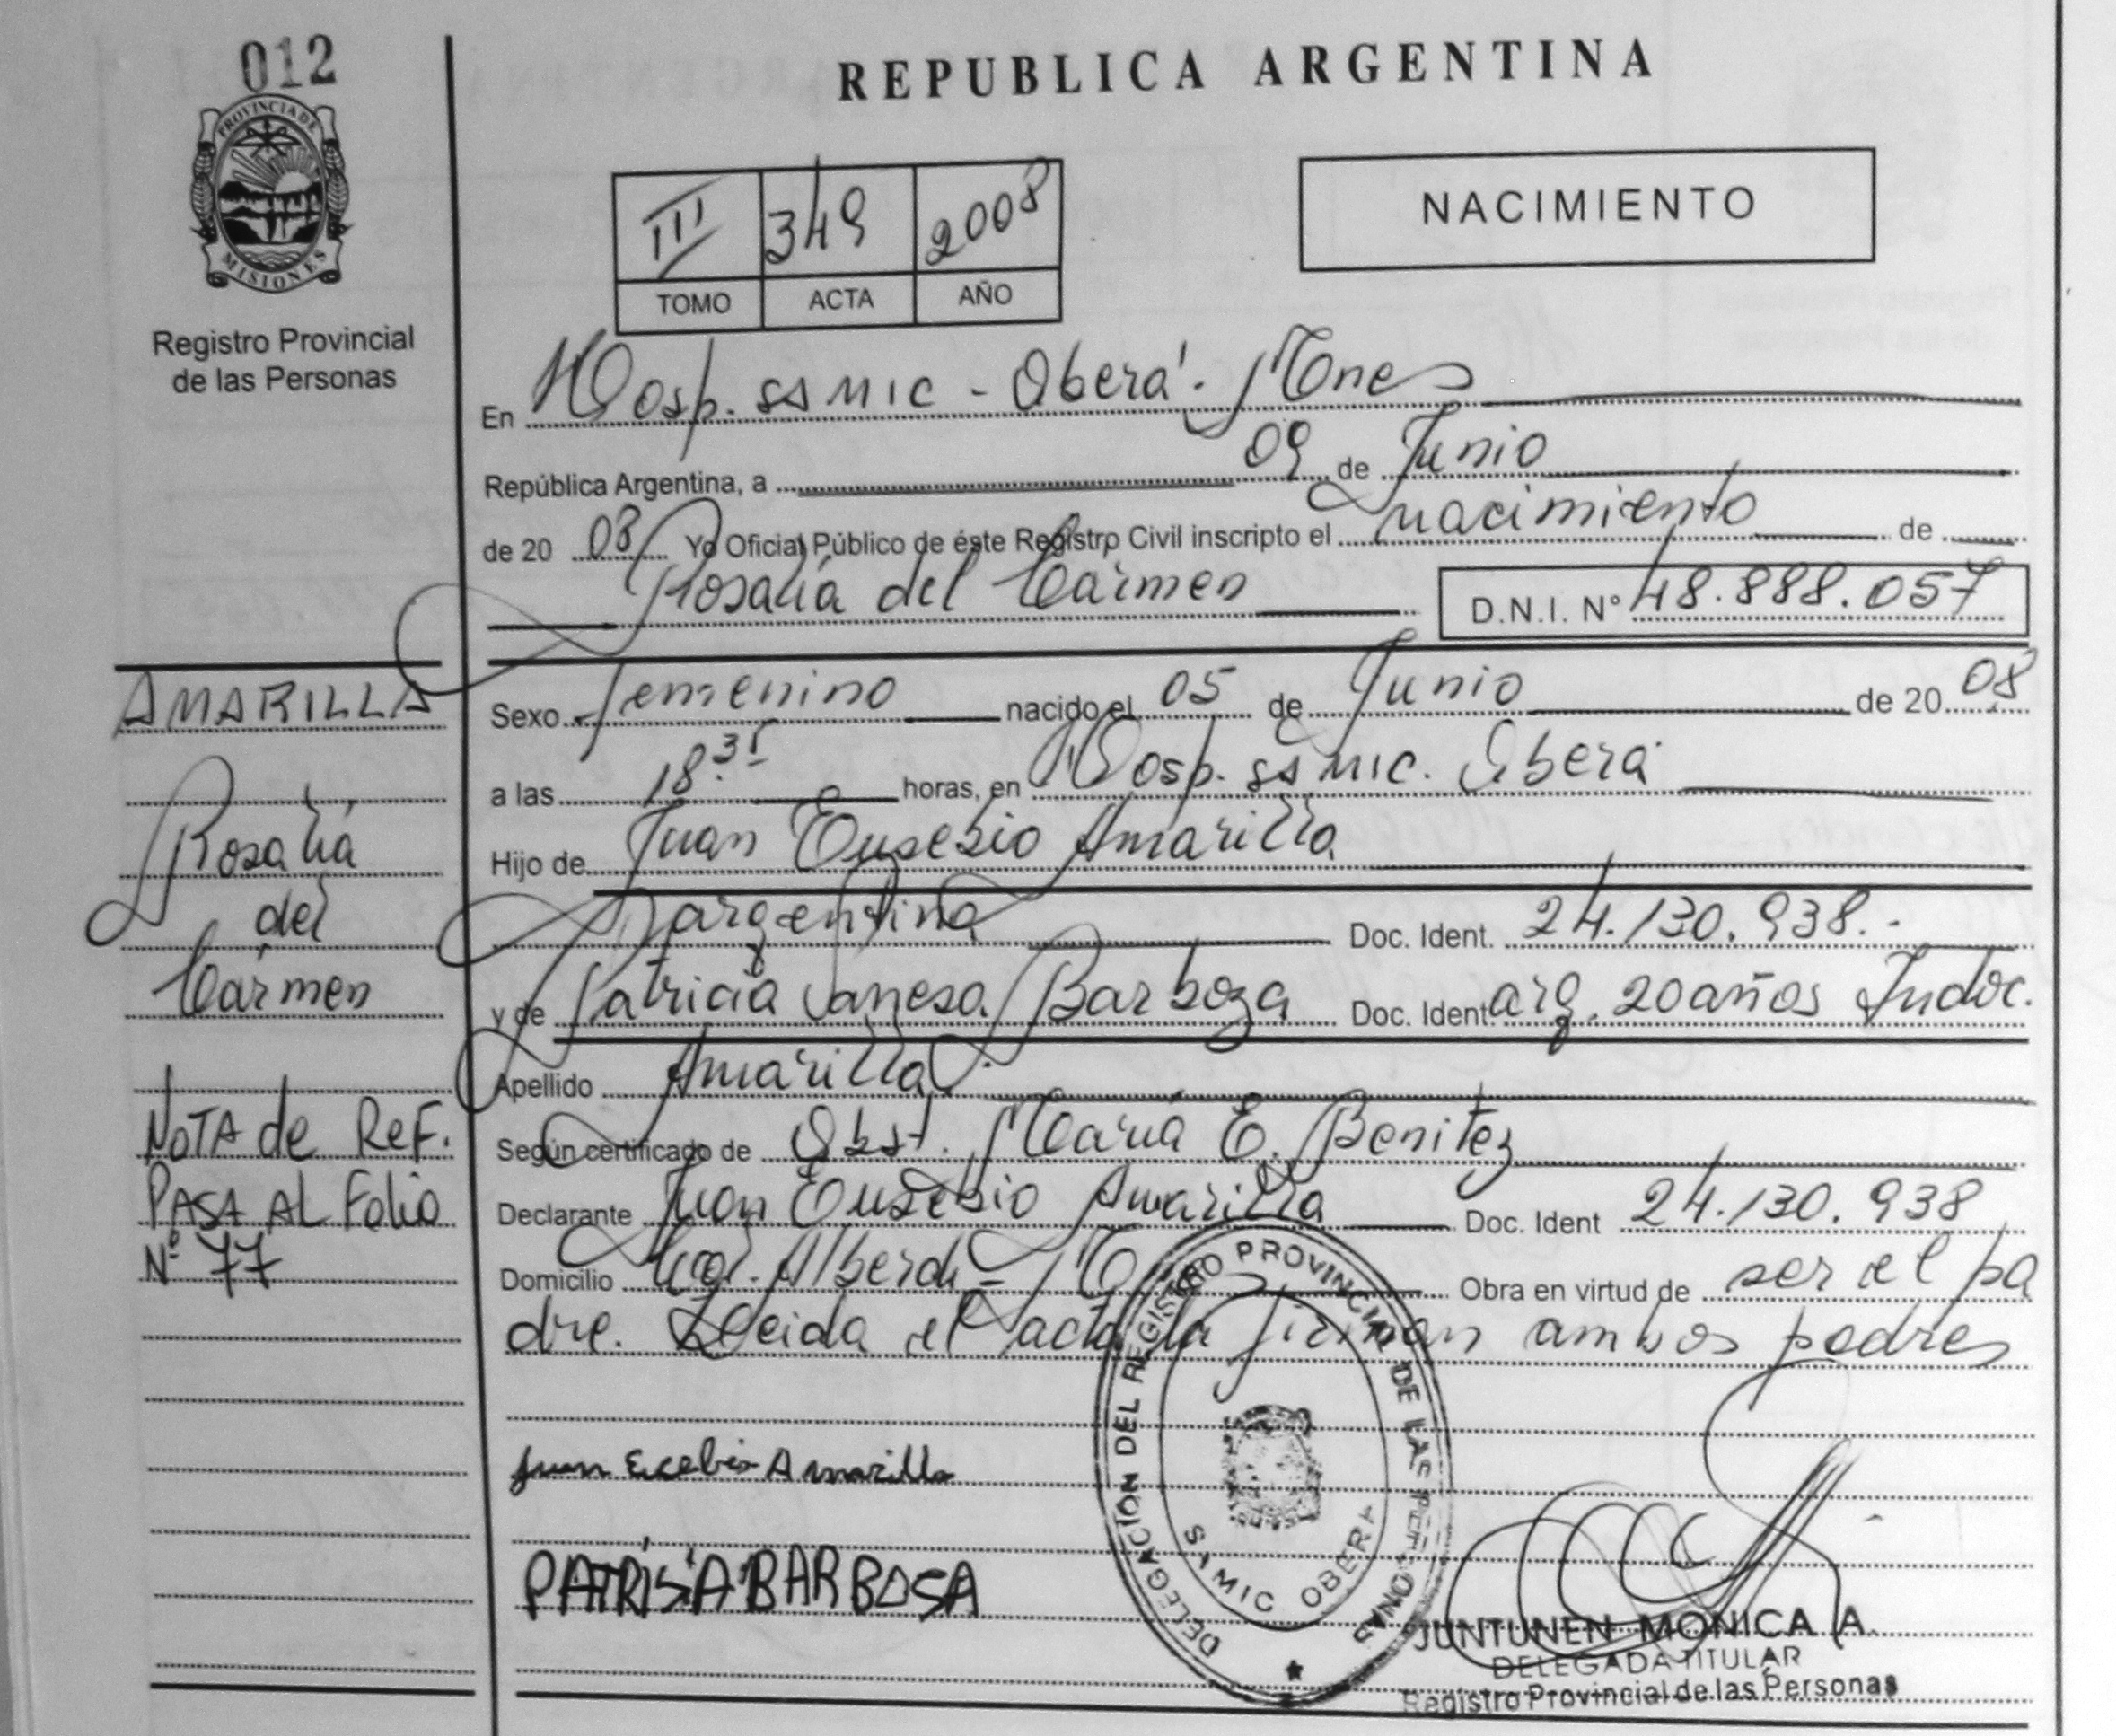 012
REPUBLICA ARGENTINA
PROVINCIA DE
MISIONES
Registro Provincial
de las Personas
III 349 2008
TOMO ACTA AÑO
NACIMIENTO
En Hosp. SAMIC - Oberá. Mnes
República Argentina, a 09 de Junio
de 20 08 Yo Oficial Público de éste Registro Civil inscripto el nacimiento de
Rosalía del Carmen D.N.I. Nº 48.888.057
AMARILLA
Rosalía
del
Carmen
NOTA de REF.
PASA AL Folio
Nº 77
Sexo femenino nacido el 05 de Junio de 20 08
a las 18.35 horas, en Hosp. SAMIC. Oberá
Hijo de Juan Eusebio Amarilla
argentina Doc. Ident. 24.130.938.-
y de Patricia Vanesa Barboza Doc. Ident arg. 20 años Indoc.
Apellido Amarilla.
Según certificado de Obst. María E. Benitez
Declarante Juan Eusebio Amarilla Doc. Ident 24.130.938
Domicilio Alberdi - Obra en virtud de ser el pa
dre. Leida el acta la firman ambos padres
Juan Eucebio Amarilla
PATRÍSIA BARBOSA
DELEGACIÓN DEL REGISTRO PROVINCIAL DE LAS PERSONAS
SAMIC OBERA
JUNTUNEN MONICA A.
DELEGADA TITULAR
Registro Provincial de las Personas